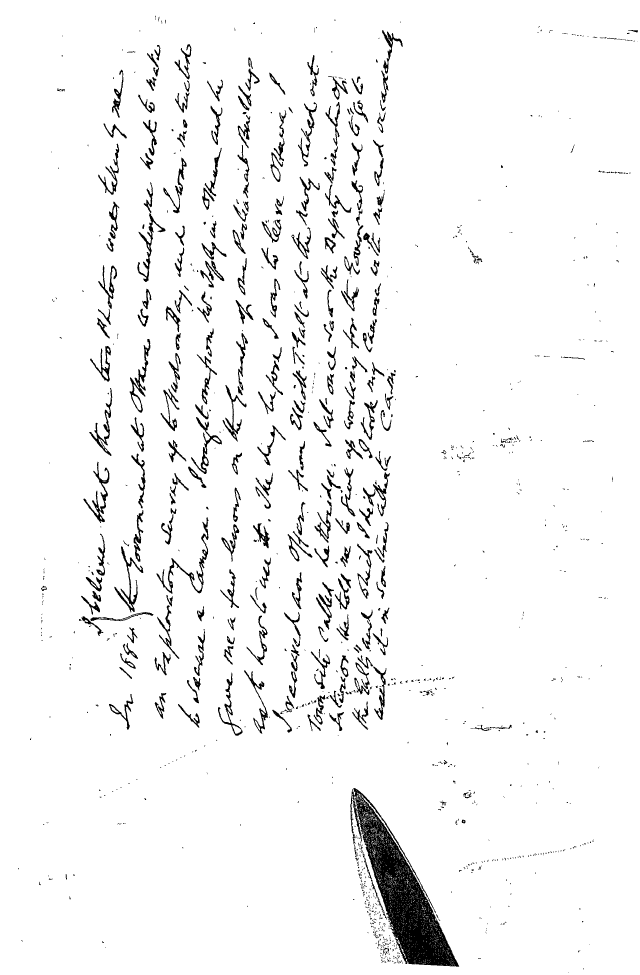 I believe that these two Photos were taken by me
In 1884 the Government at Ottawa was sending me West to make
an Exploratory Survey up to Hudson Bay, and I was instructed
to secure a Camera. I bought one from Mr. Topley in Ottawa and he
gave me a few lessons on the Grounds of the Parliament Buildings
as to how to use it. The day before I was to leave Ottawa, I
I received an offer from Elliott T. Galt at the newly staked out
Town site called Lethbridge. I at once saw the Deputy Minister of
Interior. He told me to give up working for the Government and to go to
the Galts" and which I did. I took my Camera with me and occasionally
used it in Southern Alberta